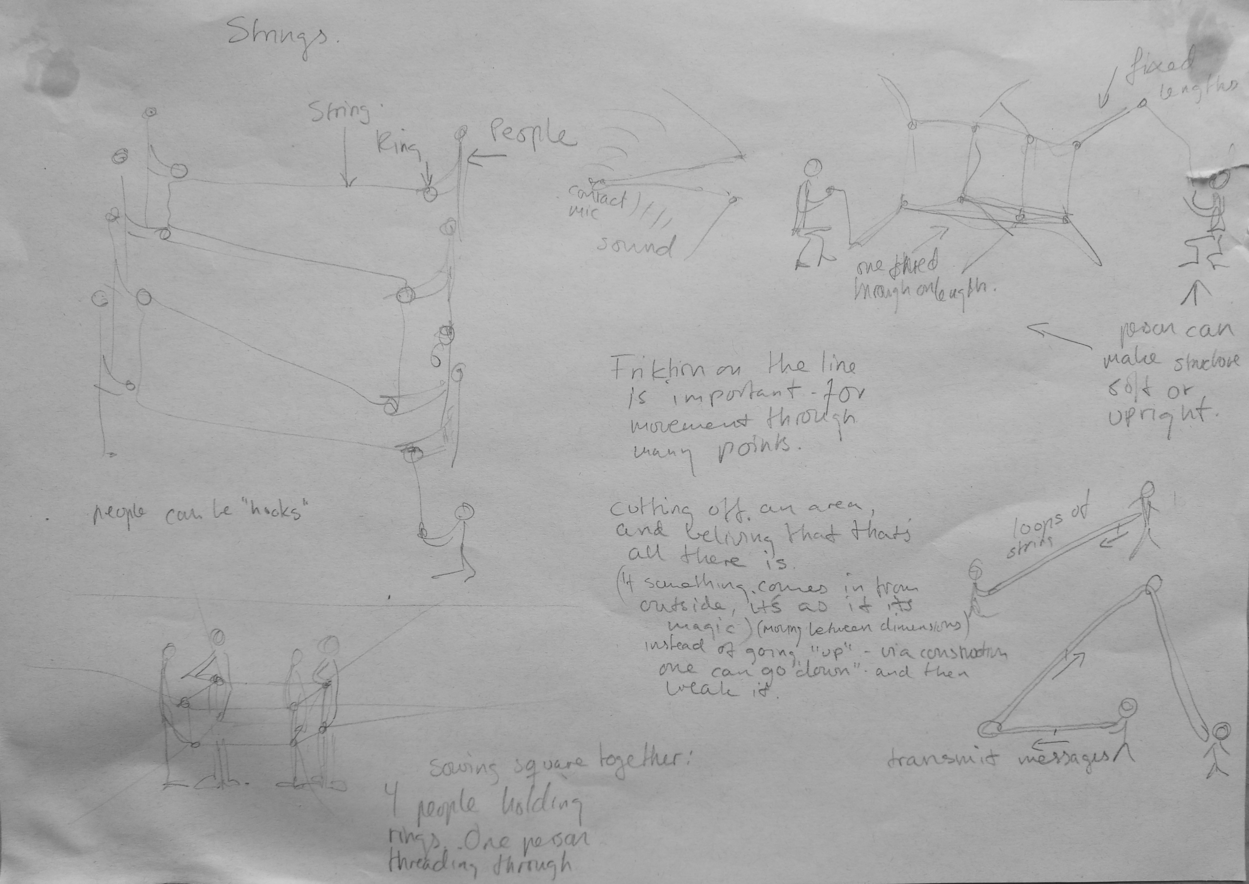 Strings.
String.
Ring
People
contact
mic
sound
fixed
lengths
one thred
through on length.
person can
make structure
soft or
upright.
Friktion on the line
is important for
movement through
many points.
people can be "hooks"
cutting off an area,
and beliving that that's
all there is.
(if something comes in from
outside, it's as if its
magic) (moving between dimensions)
instead of going "up" - via construction
one can go "down" and then
it.
loops of
string
transmit messages
sowing square together:
4 people holding
rings. One person
threading through